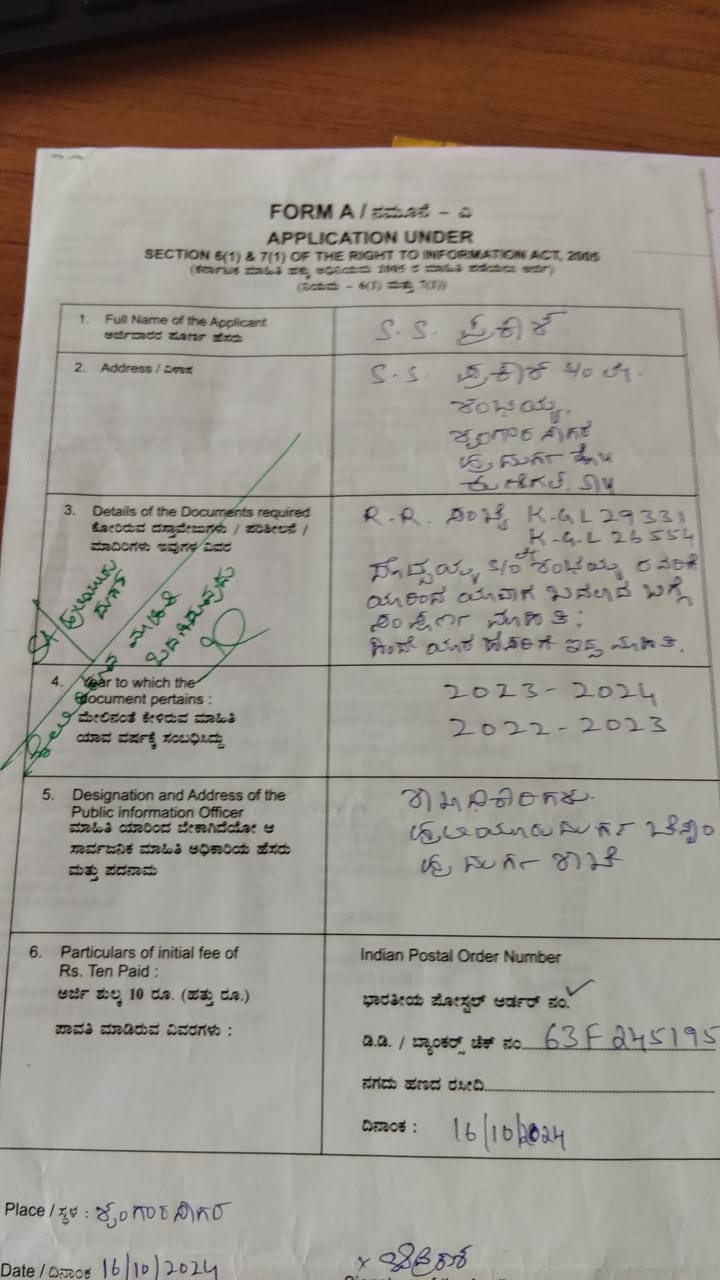 FORM A / ನಮೂನೆ - ಎ
APPLICATION UNDER
SECTION 6(1) & 7(1) OF THE RIGHT TO INFORMATION ACT, 2005
(ಕರ್ನಾಟಕ ಮಾಹಿತಿ ಹಕ್ಕು ಅಧಿನಿಯಮ 2005 ರ ಮಾಹಿತಿ ಪಡೆಯಲು ಅರ್ಜಿ)
(ನಿಯಮ - 6(1) ಮತ್ತು 7(1))
1. Full Name of the Applicant
ಅರ್ಜಿದಾರರ ಪೂರ್ಣ ಹೆಸರು
S. S. ಪ್ರಕಾಶ
2. Address / ವಿಳಾಸ
S. S. ಪ್ರಕಾಶ S/o ಲೇ.
ಶಂಭಯ್ಯ,
ಶೃಂಗಾರ ಸಾಗರ
3. Details of the Documents required
ಕೋರಿರುವ ದಸ್ತಾವೇಜುಗಳು / ಪರಿಶೀಲನೆ /
ಮಾದರಿಗಳು ಇವುಗಳ ವಿವರ
R.R. ಸಂಖ್ಯೆ K.G.L 29331
K.G.L 26554
S/o ಲೇ ಶಂಭಯ್ಯ
ಯಾರಿಂದ ಯಾವಾಗ ಬದಲಾದ ಬಗ್ಗೆ
ಸಂಪೂರ್ಣ ಮಾಹಿತಿ;
ಹಿಂದೆ ಯಾರ ಹೆಸರಿಗೆ ಇತ್ತು ಮಾಹಿತಿ.
4. Year to which the
document pertains :
ಮೇಲಿನಂತೆ ಕೇಳಿರುವ ಮಾಹಿತಿ
ಯಾವ ವರ್ಷಕ್ಕೆ ಸಂಬಧಿಸಿದ್ದು
2023 - 2024
2022 - 2023
5. Designation and Address of the
Public information Officer
ಮಾಹಿತಿ ಯಾರಿಂದ ಬೇಕಾಗಿದೆಯೋ ಆ
ಸಾರ್ವಜನಿಕ ಮಾಹಿತಿ ಅಧಿಕಾರಿಯ ಹೆಸರು
ಮತ್ತು ಪದನಾಮ
6. Particulars of initial fee of
Rs. Ten Paid :
ಅರ್ಜಿ ಶುಲ್ಕ 10 ರೂ. (ಹತ್ತು ರೂ.)
ಪಾವತಿ ಮಾಡಿರುವ ವಿವರಗಳು :
Indian Postal Order Number
ಭಾರತೀಯ ಪೋಸ್ಟಲ್ ಆರ್ಡರ್ ನಂ.
ಡಿ.ಡಿ. / ಬ್ಯಾಂಕರ್ಸ್ ಚೆಕ್ ನಂ 63F 245195
ನಗದು ಹಣದ ರಸೀದಿ
ದಿನಾಂಕ : 16/10/2024
Place / ಸ್ಥಳ : ಶೃಂಗಾರ ಸಾಗರ
Date / ದಿನಾಂಕ 16/10/2024